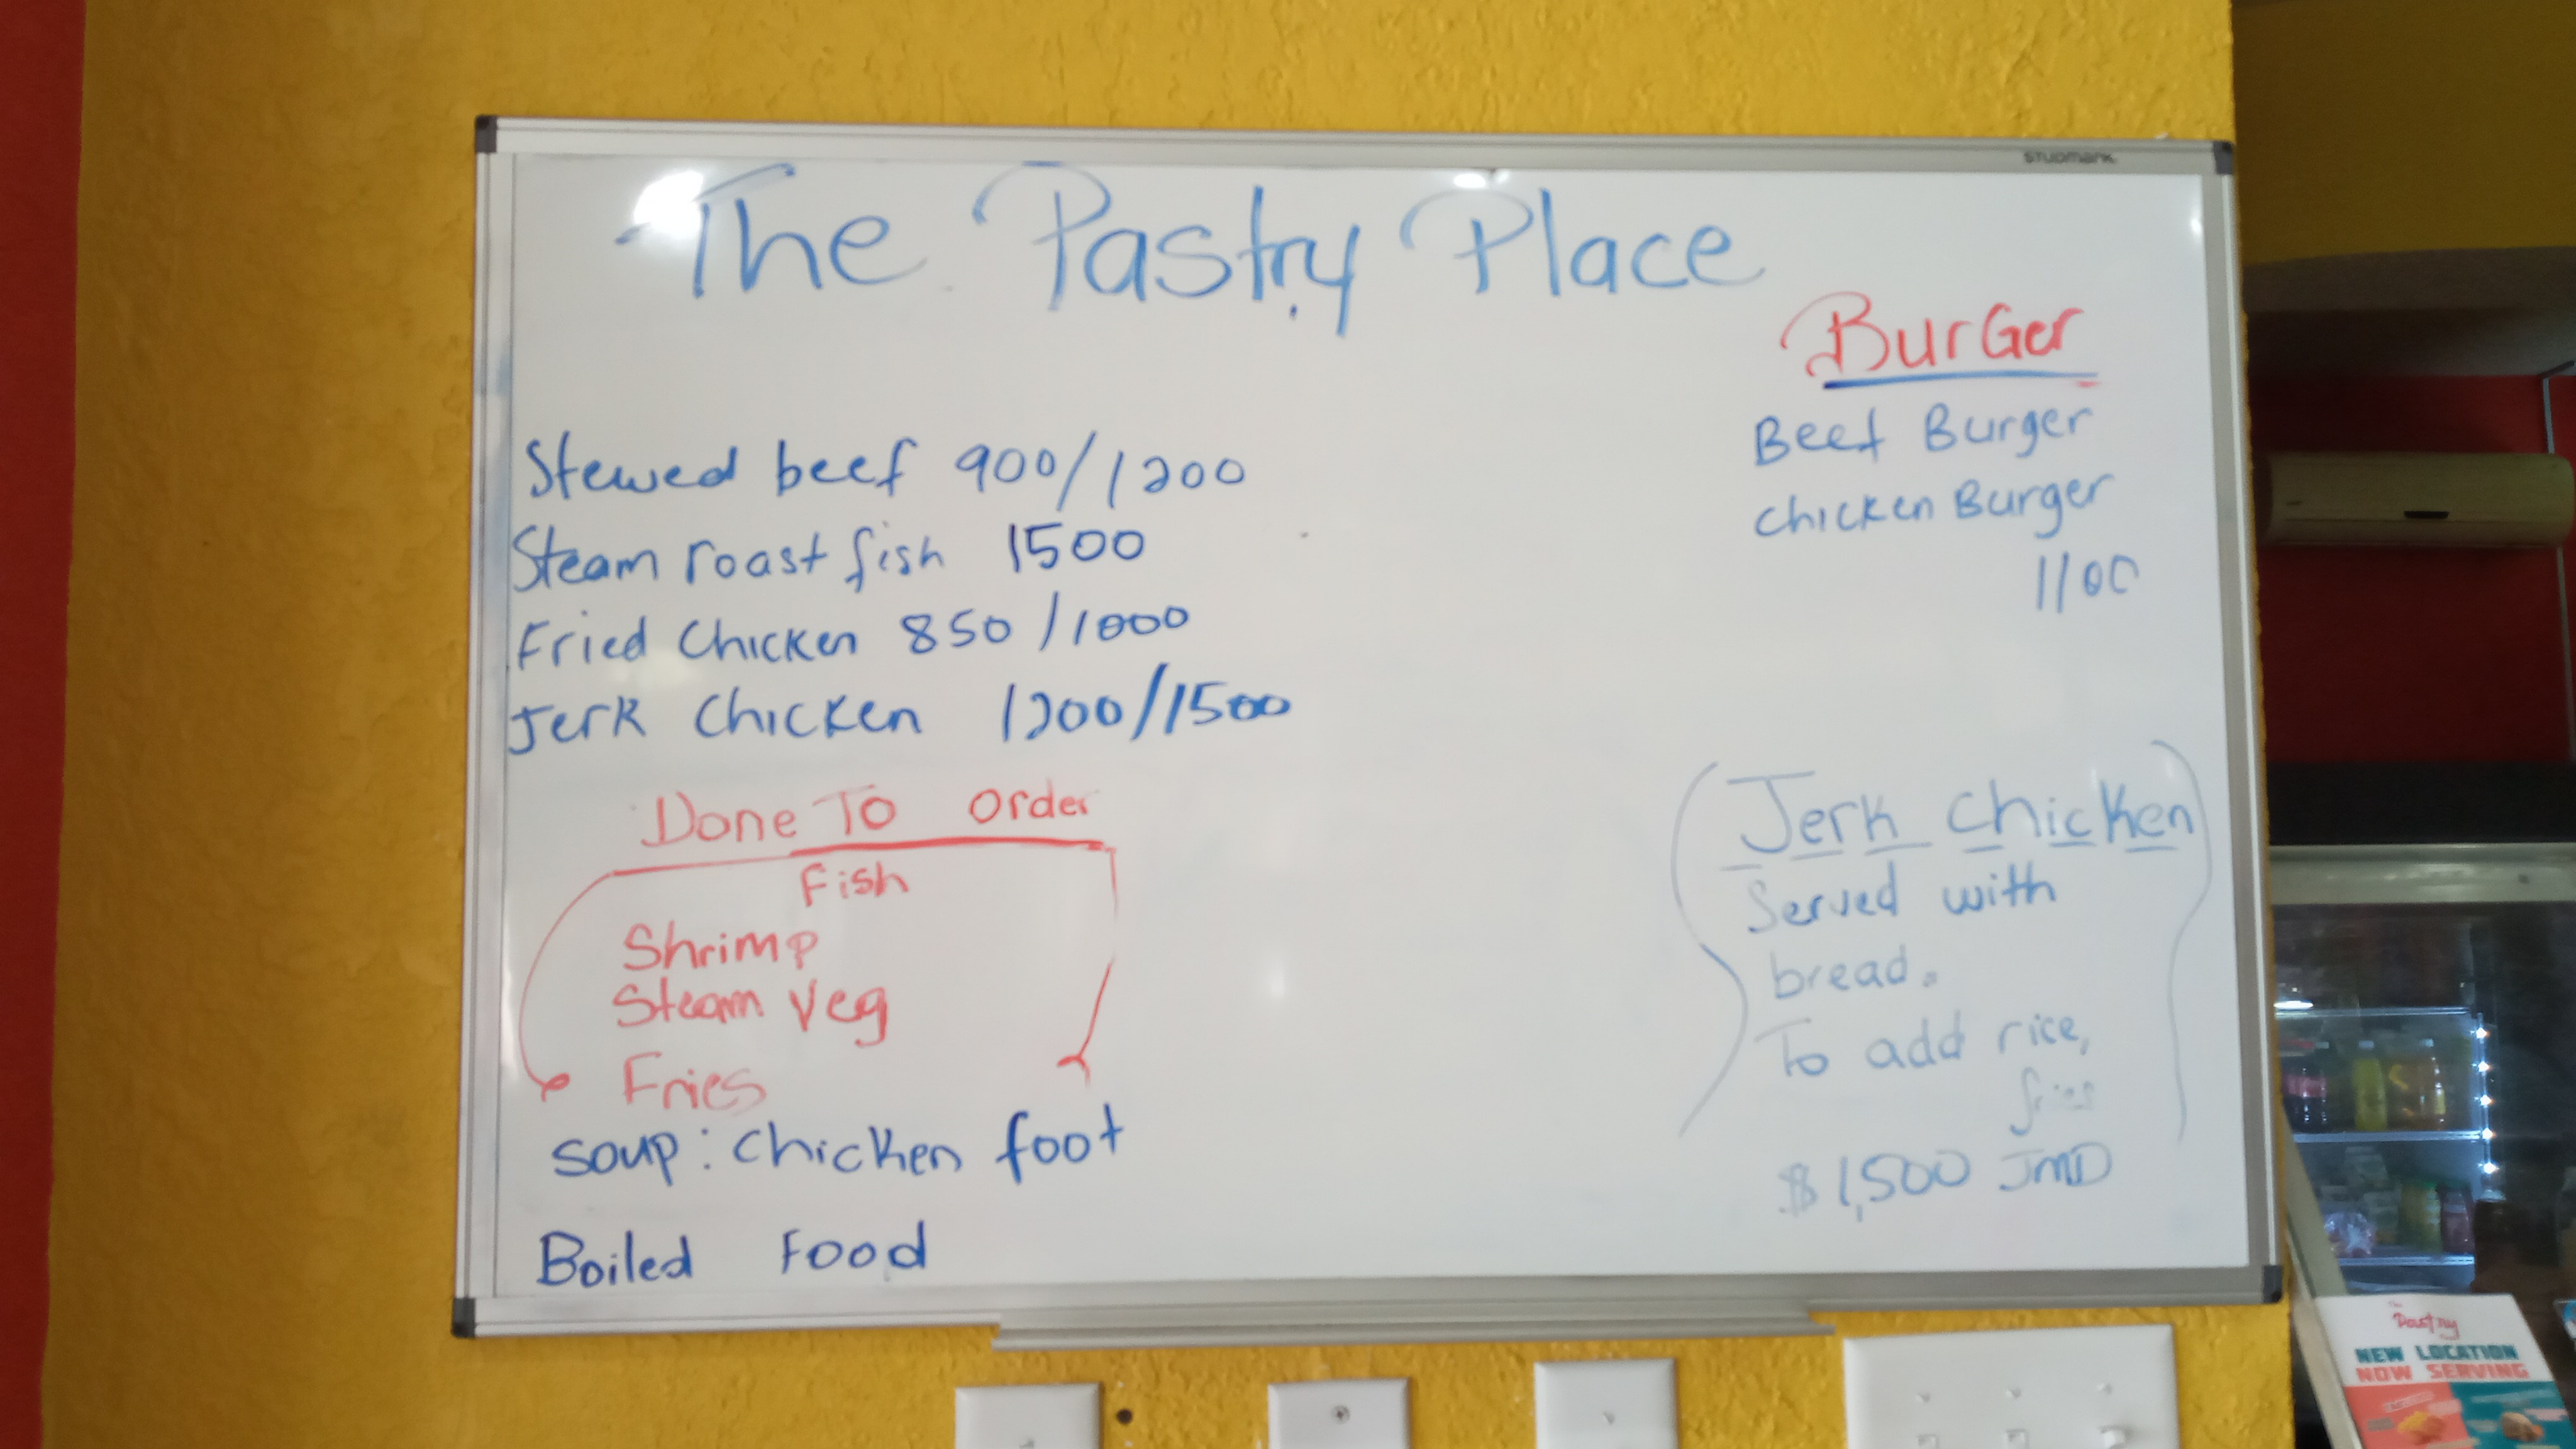 STUDMARK
The Pastry Place
BurGer
Beef Burger
Chicken Burger
1100
Stewed beef 900/1200
Steam roast fish 1500
Fried Chicken 850/1000
Jerk Chicken 1200/1500
Done To Order
Fish
Shrimp
Steam Veg
Fries
Soup: Chicken foot
Boiled Food
Jerk Chicken
Served with
bread.
To add rice,
fries
$1,500 JMD
Pastry
NEW LOCATION
NOW SERVING